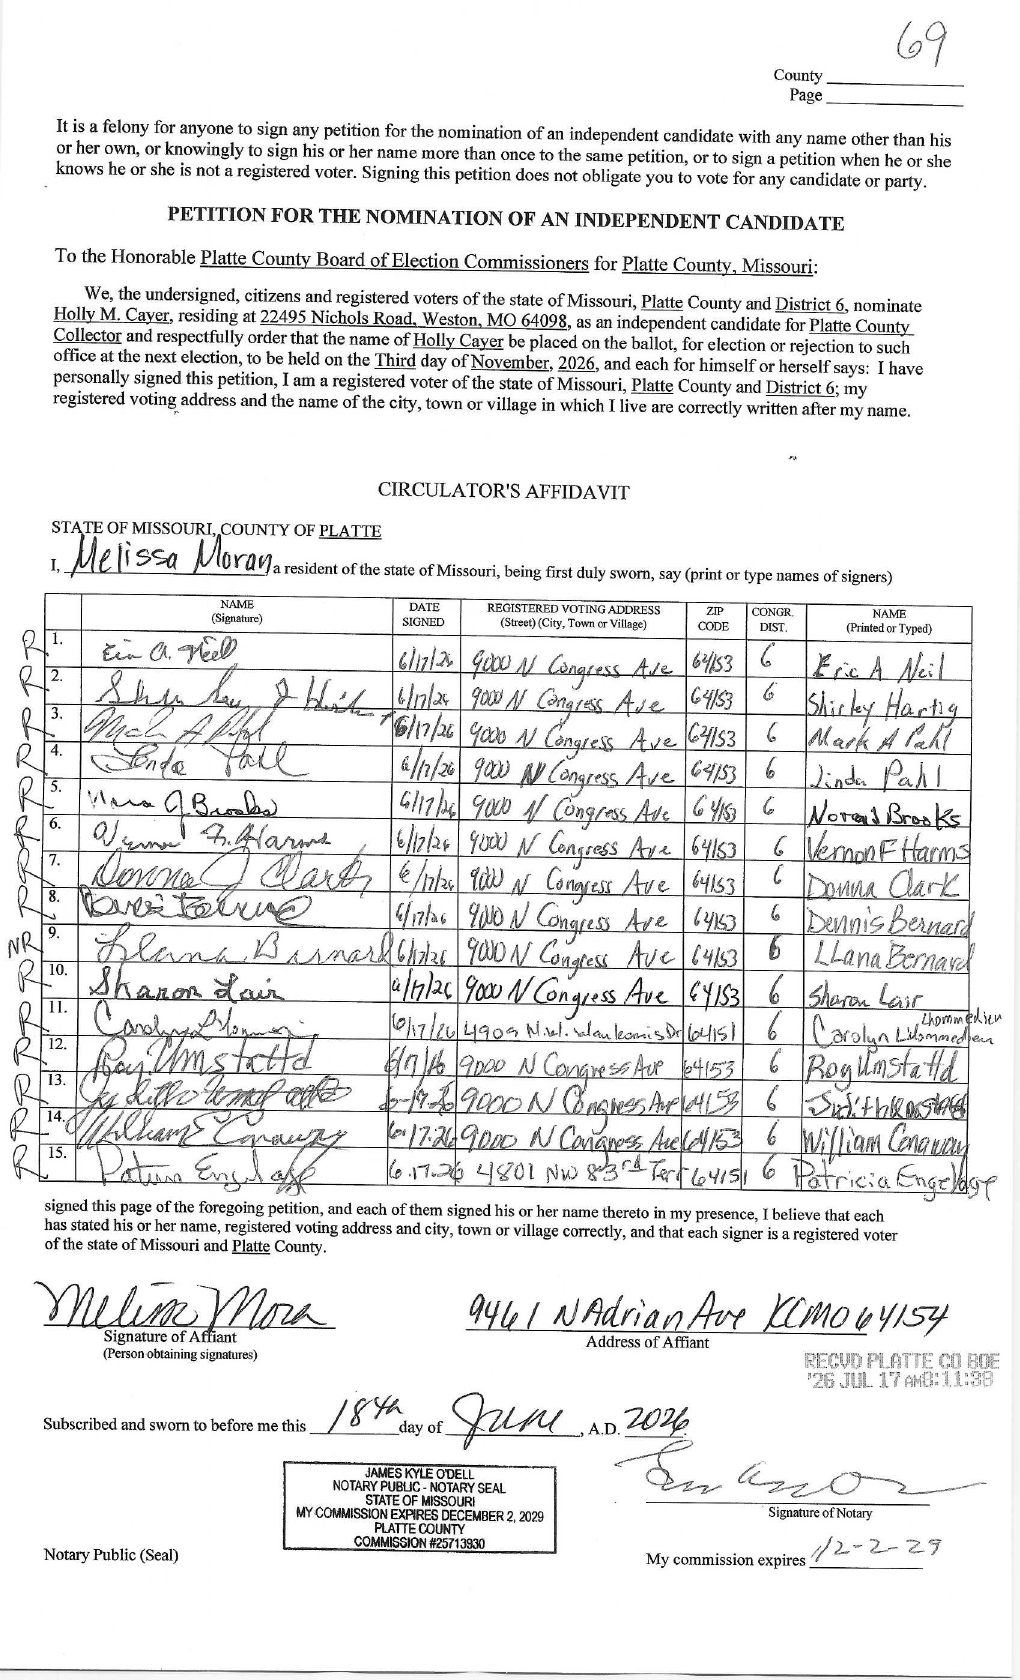 69
County
Page
It is a felony for anyone to sign any petition for the nomination of an independent candidate with any name other than his
or her own, or knowingly to sign his or her name more than once to the same petition, or to sign a petition when he or she
knows he or she is not a registered voter. Signing this petition does not obligate you to vote for any candidate or party.
PETITION FOR THE NOMINATION OF AN INDEPENDENT CANDIDATE
To the Honorable Platte County Board of Election Commissioners for Platte County, Missouri:
We, the undersigned, citizens and registered voters of the state of Missouri, Platte County and District 6, nominate
Holly M. Cayer, residing at 22495 Nichols Road, Weston, MO 64098, as an independent candidate for Platte County
Collector and respectfully order that the name of Holly Cayer be placed on the ballot, for election or rejection to such
office at the next election, to be held on the Third day of November, 2026, and each for himself or herself says: I have
personally signed this petition, I am a registered voter of the state of Missouri, Platte County and District 6; my
registered voting address and the name of the city, town or village in which I live are correctly written after my name.
CIRCULATOR'S AFFIDAVIT
STATE OF MISSOURI, COUNTY OF PLATTE
I, Melissa Moran a resident of the state of Missouri, being first duly sworn, say (print or type names of signers)
NAME (Signature) DATE SIGNED REGISTERED VOTING ADDRESS (Street) (City, Town or Village) ZIP CODE CONGR. DIST. NAME (Printed or Typed)
R 1. Eric A. Neil 6/17/26 9000 N Congress Ave 64153 6 Eric A Neil
R 2. 6/17/26 9000 N Congress Ave 64153 6 Shirley Hartig
R 3. 6/17/26 9000 N Congress Ave 64153 6 Mark A Pahl
R 4. Linda Pahl 6/17/26 9000 N Congress Ave 64153 6 Linda Pahl
R 5. Nora J. Brooks 6/17/26 9000 N Congress Ave 64153 6 Nora J Brooks
R 6. Vernon F. Harms 6/17/26 9000 N Congress Ave 64153 6 Vernon F Harms
R 7. Donna J Clark 6/17/26 9000 N Congress Ave 64153 6 Donna Clark
R 8. 6/17/26 9000 N Congress Ave 64153 6 Dennis Bernard
NR 9. Llana Bernard 6/17/26 9000 N Congress Ave 64153 6 LLana Bernard
R 10. Sharon Lair 6/17/26 9000 N Congress Ave 64153 6 Sharon Lair
R 11. 6/17/26 64151 6 Carolyn L'Hommedieu Lhommedieu
R 12. Roy Umstattd 6/17/26 9000 N Congress Ave 64153 6 Roy Umstattd
R 13. 6-17-26 9000 N Congress Ave 64153 6 Judith
R 14. William E Conaway 6.17.26 9000 N Congress Ave 64153 6 William Conaway
R 15. 6.17.26 4801 NW 83rd Terr 64151 6 Patricia Engelage
signed this page of the foregoing petition, and each of them signed his or her name thereto in my presence, I believe that each
has stated his or her name, registered voting address and city, town or village correctly, and that each signer is a registered voter
of the state of Missouri and Platte County.
9461 N Adrian Ave KCMO 64154
Signature of Affiant
Address of Affiant
(Person obtaining signatures)
RECVD PLATTE CO BOE
'26 JUL 17 AM8:11:38
Subscribed and sworn to before me this 18th day of June, A.D. 2026
JAMES KYLE O'DELL
NOTARY PUBLIC - NOTARY SEAL
STATE OF MISSOURI
MY COMMISSION EXPIRES DECEMBER 2, 2029
PLATTE COUNTY
COMMISSION #25713930
Signature of Notary
Notary Public (Seal)
My commission expires 12-2-29